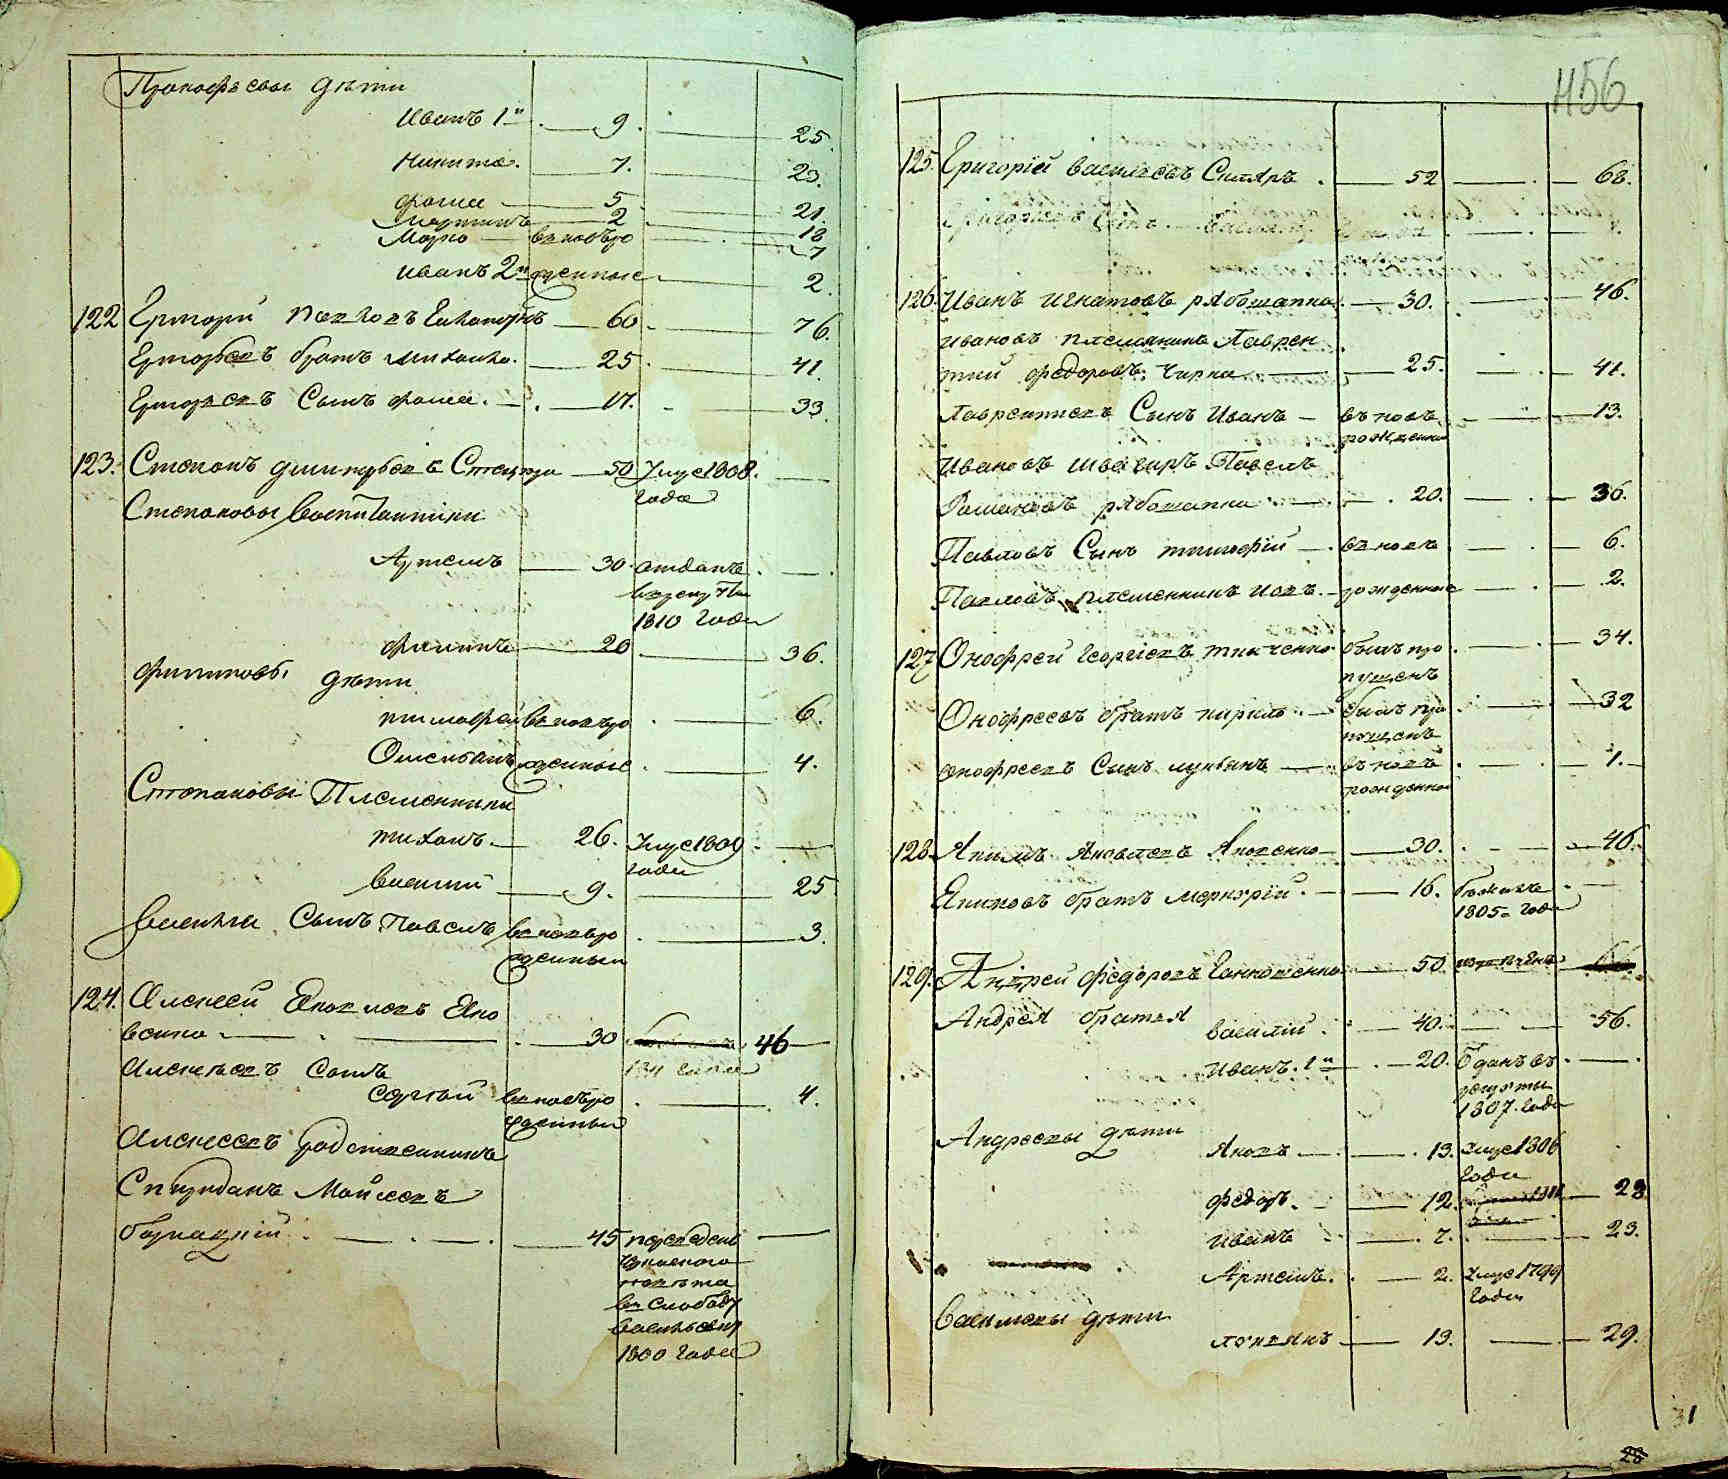 Прокофьевы дѣти
Иванъ 1й 9. 25.
Никита. 7. 23.
фома 5 21.
Мартинъ 2 18
Марко въновьро 7
Иванъ 2й жденные 2.
122 Григори Павловъ 60 76.
Григорьевъ братъ Михайло. 25 41.
Григорьевъ Сынъ фома. 17. 33
123. Степанъ дмитрьевъ 50 Умре 1808.
года
Степановы воспитанники
Артемъ 30 отданъ
врекруты
1810 Года
филипъ 20 36.
филиповы дѣти
тимофей въновьро 6.
жденные 4.
Степановы Племенники
тихонъ. 26. Умре 1809
Года
Василий 9. 25
Василия Сынъ Павелъ въновьро 3.
жденный
124. Алексей Яковлевъ Яко
венко 30 46
1811 Года
Алексеевъ Сынъ
Сергей въновьро 4.
жденный
Алексеевъ родственникъ
Спиридонъ Мойсеевъ
45 переведенъ
повѣта
въ Слободу
Васильевку
1800 Года
456
125. Григорій Васильевъ 52 68.
Григорьевъ Сынъ
126. Иванъ Игнатовъ рябошапка 30. 46.
Ивановъ племянникъ Лаврен
тий федоровъ Чирка 25. 41.
Лаврентиевъ Сынъ Иванъ въновь 13.
рожденны
Ивановъ швагиръ Павелъ
Романовъ рябошапка 20. 36.
Павловъ Сынъ тимофѣй въновь 6.
Павловъ племенникъ Иовъ рожденные 2.
127 Онофрей Георгіевъ ткаченко былъ про 34.
пущенъ
Онофреевъ братъ кирило былъ про 32
пущенъ
Онофреевъ Сынъ лукьянъ въновь 1.
рожденны
128. Якимъ Яковлевъ Яковенко 30. 46.
Якимовъ братъ меркурій 16. бежалъ
1805. Года
129. Андрей федоровъ 50.
Андрея братья Василий 40. 56.
Иванъ. 1й 20. Отданъ въ
рекруты
1807. Года
Андреевы дѣти Яковъ 13. Умре 1806
Года
федоръ. 12. 28
Иванъ 7. 23.
Артемъ. 2. Умре 1799
Года
Васильевы дѣти
лукьянъ 13. 29.
31
28